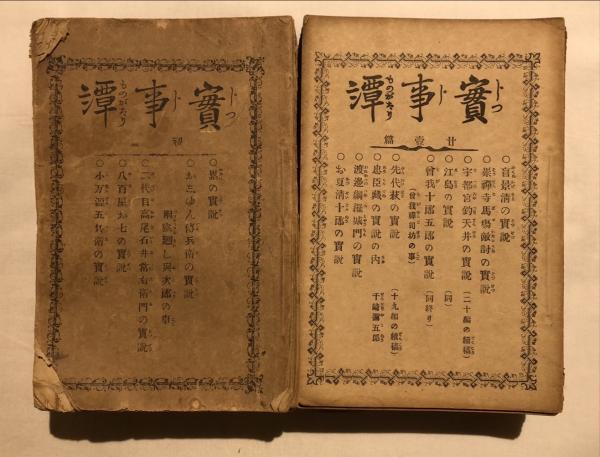 實事譚
初
○累の實説
○おしゆん傳兵衛の實説
廻し與次郎の事
○二代目高尾石井常右衛門の實説
○八百屋お七の實説
○小万源五兵衛の實説
實事譚
廿壹篇
○盲景清の實説
○崇禪寺馬塲敵討の實説
○宇都宮釣天井の實説(二十編の續稿)
○江島の實説(同)
○曾我十郎五郎の實説(同終り)
(曾我禪司坊の事)
○先代萩の實説(十九編の續稿)
○忠臣藏の實説の内 千崎彌五郎
○渡邊綱羅城門の實説
○お夏清十郎の實説